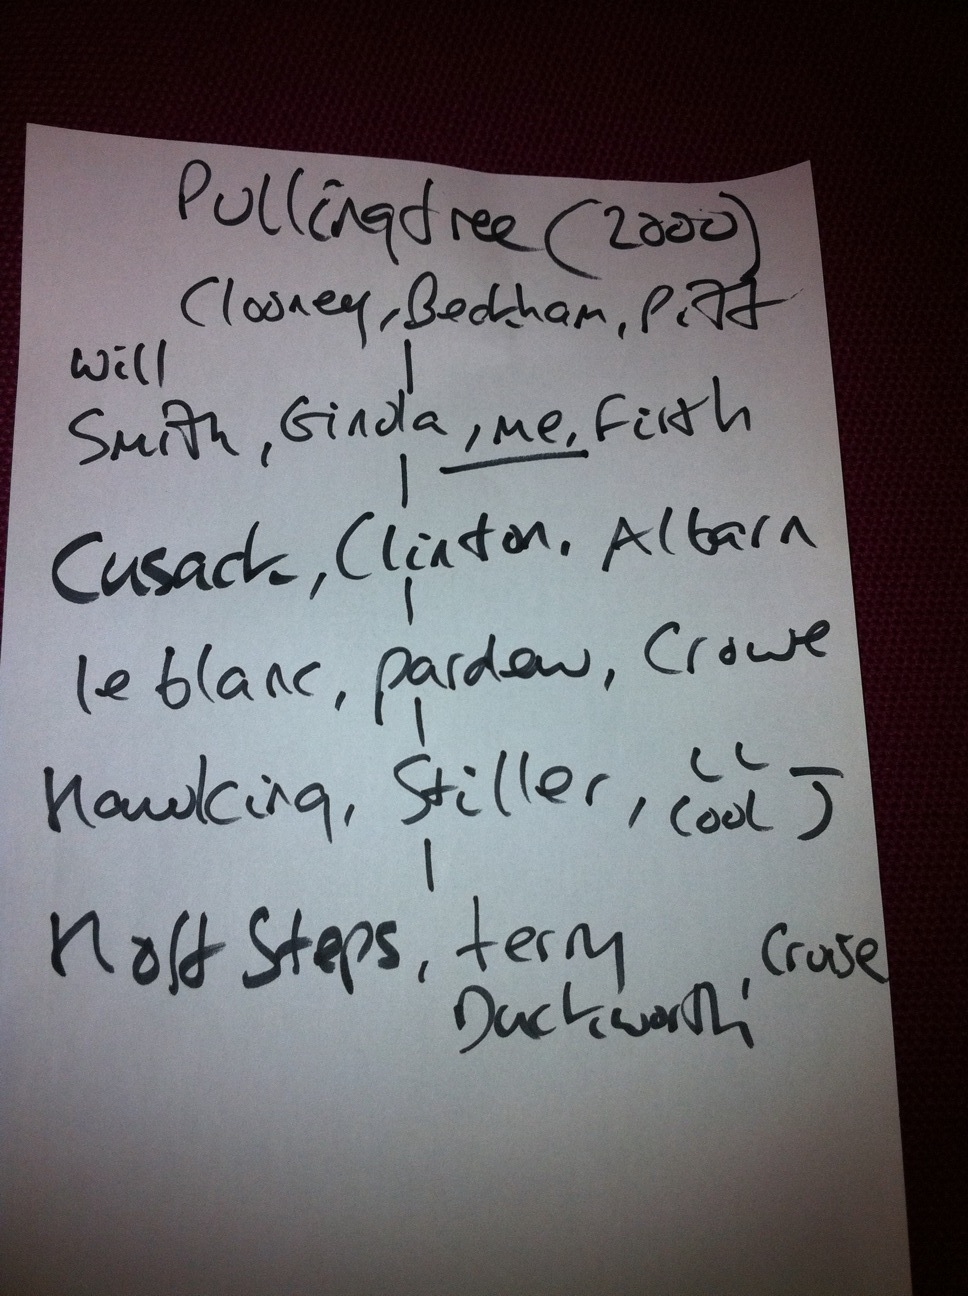 Pullingtree (2000)
Clooney, Beckham, Pitt
Will
Smith, Ginola, me, Firth
Cusack, Clinton, Albarn
le blanc, pardew, Crowe
Hawking, Stiller, LL
Cool J
H off Steps, terry
Duckworth, Cruise